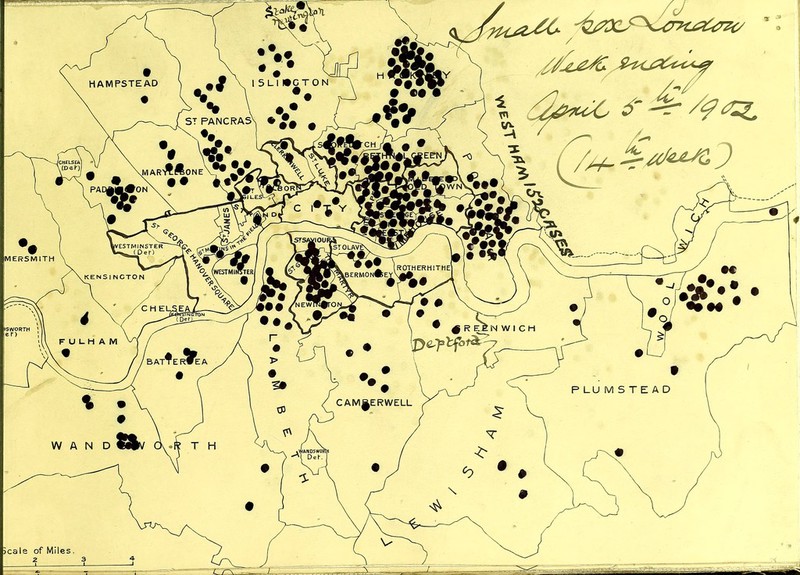 Small pox London
Week ending
April 5th 1902
(14th week)
WESTHAM 152 CASES
Stoke
Newington
HAMPSTEAD
ISLINGTON
HACKNEY
ST PANCRAS
SHOREDITCH
CLERKENWELL
ST LUKE
BETHNAL GREEN
CHELSEA
(Det)
MARYLEBONE
PADDINGTON
HOLBORN
GILES
OLD TOWN
STRAND
CITY
ST JAMES
ST GEORGE HANOVER SQUARE
ST MARTINS IN THE FIELDS
WESTMINSTER
(Det)
WESTMINSTER
ST SAVIOURS
ST OLAVE
BERMONDSEY
ROTHERHITHE
MERSMITH
KENSINGTON
CHELSEA
NEWINGTON
WOOLWICH
KENSINGTON
(Det)
FULHAM
GREENWICH
Deptford
BATTERSEA
LAMBETH
CAMBERWELL
PLUMSTEAD
WANDSWORTH
WANDSWORTH
Det.
LEWISHAM
Scale of Miles.
2 3 4